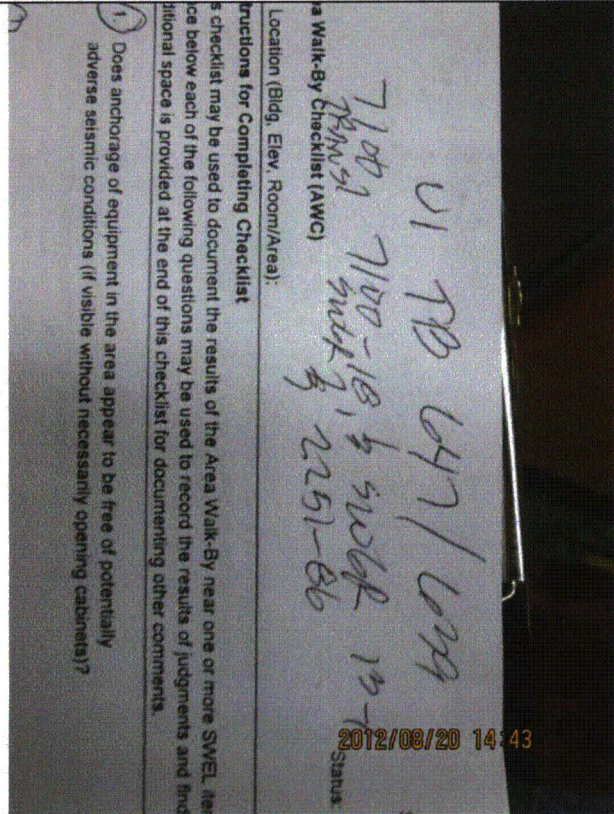 U1 TB 647/639
7100, 7100-1B & SWGR 13-1
TRANS1 SWGR 7, & 2251-86
a Walk-By Checklist (AWC)
Status:
Location (Bldg, Elev, Room/Area):
tructions for Completing Checklist
s checklist may be used to document the results of the Area Walk-By near one or more SWEL iter
ce below each of the following questions may be used to record the results of judgments and find
ditional space is provided at the end of this checklist for documenting other comments.
1. Does anchorage of equipment in the area appear to be free of potentially
adverse seismic conditions (if visible without necessarily opening cabinets)?
2012/08/20 14:43